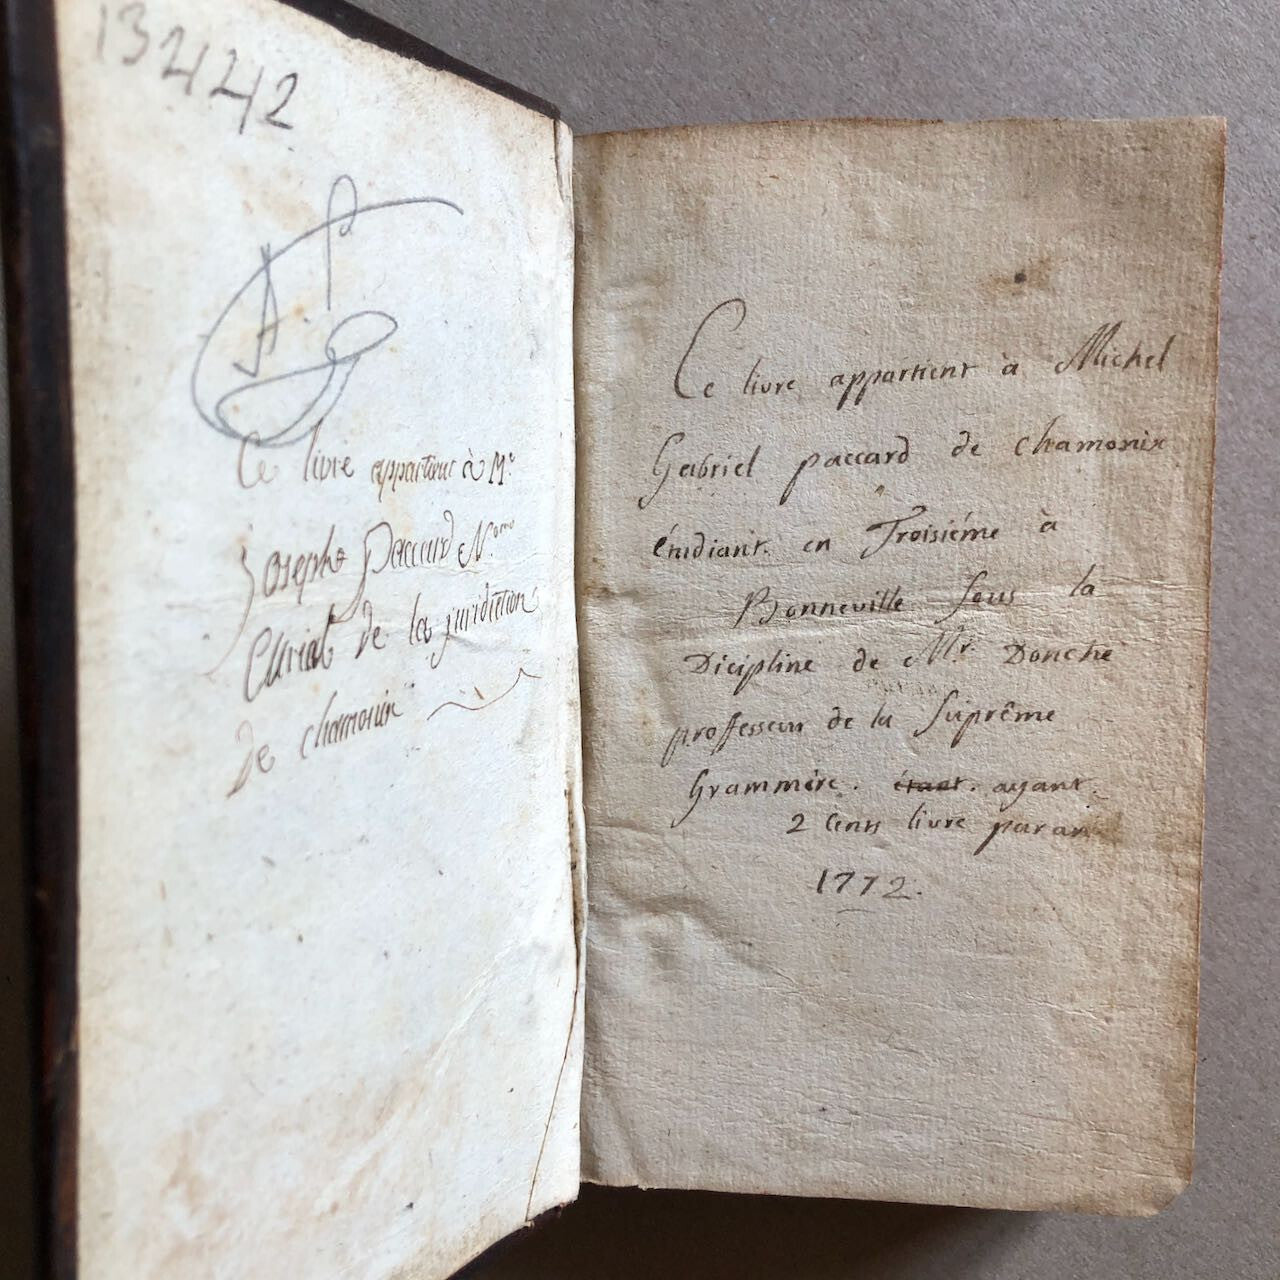 13442
A. P
Ce livre appartient à Mr
Josephe Paccard No
Curial de la juridiction
de chamonix
Ce livre appartient à Michel
Gabriel paccard de chamonix
étudiant en Troisiéme à
Bonneville sous la
Dicipline de Mr Donche
proffesseur de la suprême
Grammére. étant. ayant
2 Cents livre par an
1772.